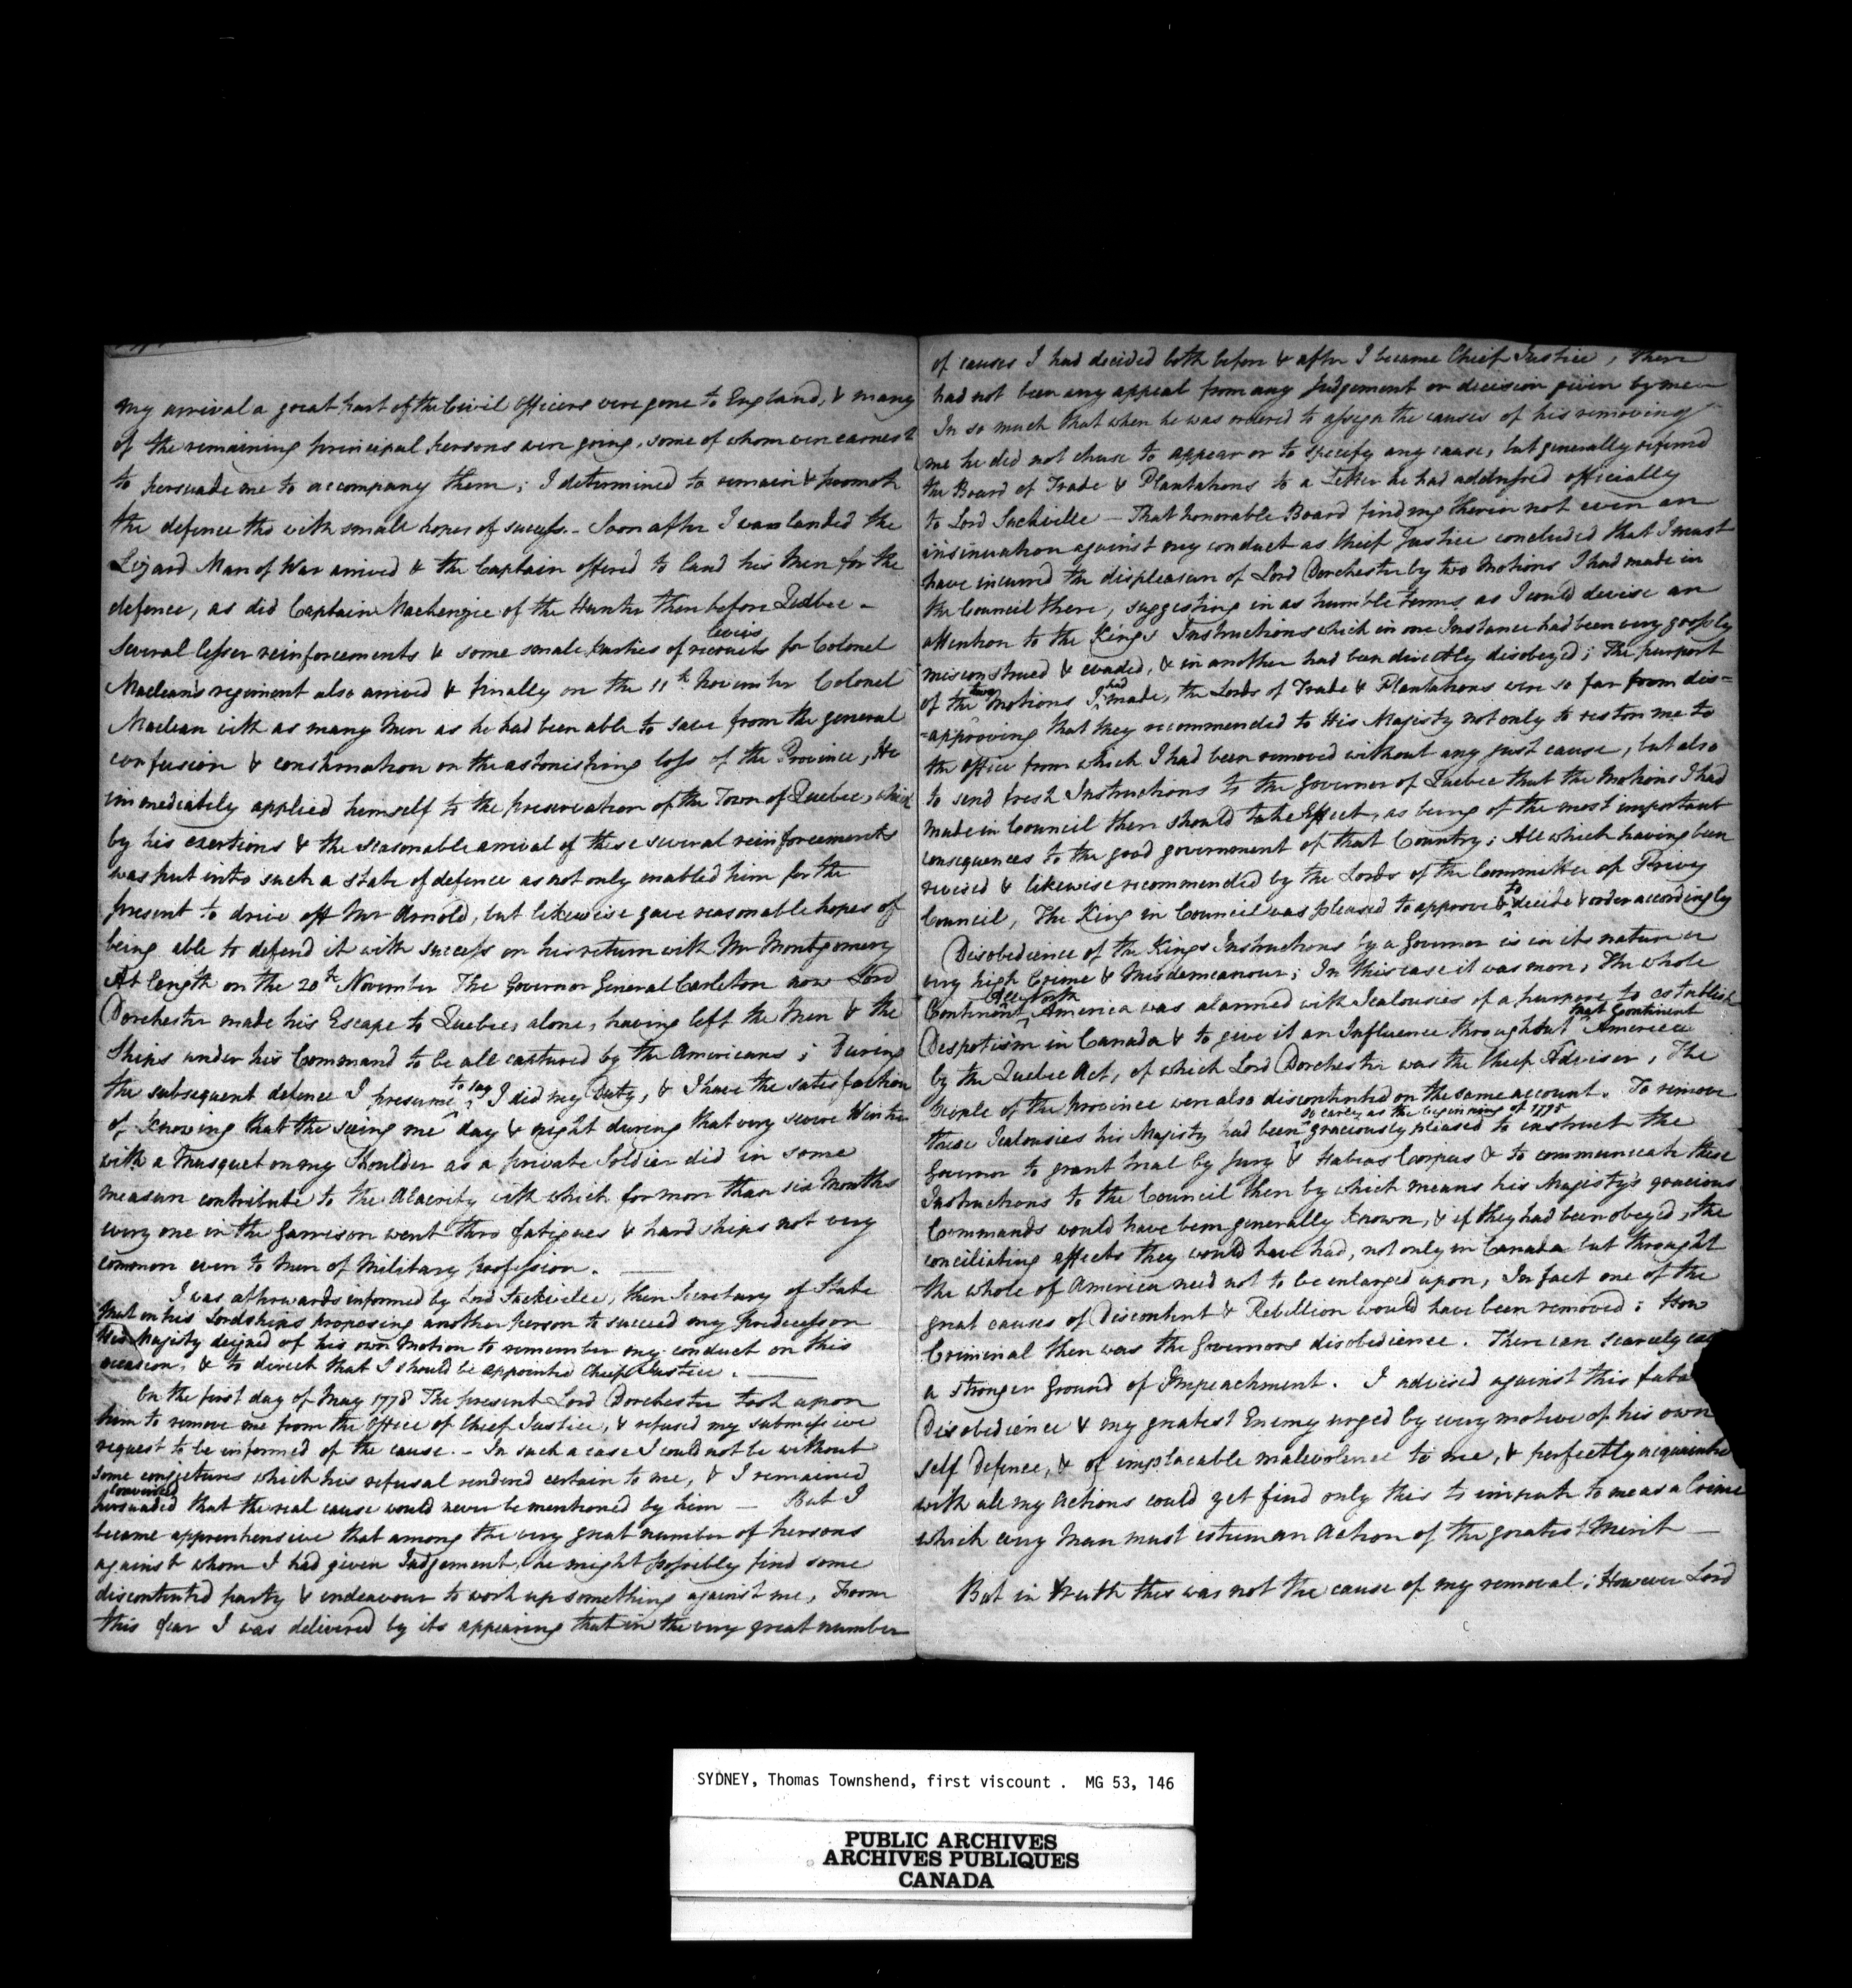 my arrival a great part of the Civil Officers were gone to England, & many
of the remaining principal persons were going, some of whom were earnest
to persuade me to accompany them; I determined to remain & promote
the defence tho with small hopes of success. – Soon after I was landed the
Lizard Man of War arrived & the Captain offered to land his Men for the
defence, as did Captain Mackenzie of the Hunter then before Quebec –
Several lesser reinforcements & some small parties of recruits for Colonel
Macleans regiment also arrived & finally on the 11th November Colonel
Maclean with as many Men as he had been able to save from the general
confusion & consternation on the astonishing loss of the Province, He
immediately applied himself to the preservation of the Town of Quebec, which
by his exertions & the seasonable arrival of these several reinforcements
was put into such a state of defence as not only enabled him for the
present to drive off Mr Arnold, but likewise gave reasonable hopes of
being able to defend it with success on his return with Mr Montgomery
At length on the 20th November The Governor General Carleton now Lord
Dorchester made his Escape to Quebec, alone, having left the Men & the
Ships under his Command to be all captured by the Americans; During
the subsequent defence I presume to say I did my Duty, & I have the satisfaction
of knowing that the seeing me day & night during that very severe Winter
with a Musquet on my Shoulder as a private Soldier did in some
measure contribute to the Alacrity with which for more than six Months
every one in the Garrison went thro fatigues & hardships not very
common even to Men of Military profession. ——
I was afterwards informed by Lord Sackville, then Secretary of State
that on his Lordships proposing another person to succeed my Predecessor
His Majesty deigned of his own Motion to remember my conduct on this
occasion, & to direct that I should be appointed Chief Justice. ——
On the first day of May 1778 The present Lord Dorchester took upon
him to remove me from the Office of Chief Justice, & refused my submissive
request to be informed of the cause. – In such a case I could not be without
some conjectures which his refusal rendered certain to me, & I remained
convinced
persuaded that the real cause would never be mentioned by him — But I
became apprehensive that among the very great number of persons
against whom I had given Judgement, he might possibly find some
discontented party & endeavour to work up something against me, From
this fear I was delivered by its appearing that in the very great number
of causes I had decided both before & after I became Chief Justice, there
had not been any appeal from any Judgement or decision given by me
In so much that when he was ordered to assign the causes of his removing
me he did not chuse to appear or to specify any cause, but generally referred
the Board of Trade & Plantations to a Letter he had addressed officially
to Lord Sackville — That honorable Board finding therein not even an
insinuation against my conduct as Chief Justice concluded that I must
have incurred the displeasure of Lord Dorchester by two Motions I had made in
the Council there, suggesting in as humble terms as I could devise an
attention to the Kings Instructions which in one Instance had been very grossly
misconstrued & evaded, & in another had been directly disobeyed; The purport
of the two Motions I had made, the Lords of Trade & Plantations were so far from dis=
=approving that they recommended to His Majesty not only to restore me to
the office from which I had been removed without any just cause, but also
to send fresh Instructions to the Governor of Quebec that the Motions I had
made in Council there should take Effect, as being of the most important
consequences to the good government of that Country; All which having been
revised & likewise recommended by the Lords of the Committee of Privy
Council, The King in Council was pleased to approve & to decide & order accordingly
Disobedience of the Kings Instructions by a Governor is in its nature a
very high Crime & Misdemeanour; In this case it was more, The whole
Continent All North America was alarmed with Jealousies of a purpose to establish
Despotism in Canada & to give it an Influence throughout that Continent America
by the Quebec Act, of which Lord Dorchester was the Chief Adviser, The
People of the Province were also discontented on the same account. To remove
so early as the beginning of 1775
these Jealousies his Majesty had been graciously pleased to instruct the
Governor to grant trial by Jury & Habeas Corpus & to communicate these
Instructions to the Council there by which means his Majesty's gracious
Commands would have been generally known, & if they had been obeyed, the
conciliating effects they would have had, not only in Canada but throughout
the whole of America need not to be enlarged upon, In fact one of the
great causes of Discontent & Rebellion would have been removed; How
Criminal then was the Governors disobedience. There can scarcely
a stronger Ground of Impeachment. I advised against this
Disobedience & my greatest Enemy urged by every motive of his own
self Defence, & of implacable malevolence to me, & perfectly acquainted
with all my actions could yet find only this to impute to me as a Crime
which every Man must esteem an Action of the greatest Merit —
But in truth this was not the cause of my removal; However Lord
SYDNEY, Thomas Townshend, first viscount . MG 53, 146
PUBLIC ARCHIVES
ARCHIVES PUBLIQUES
CANADA